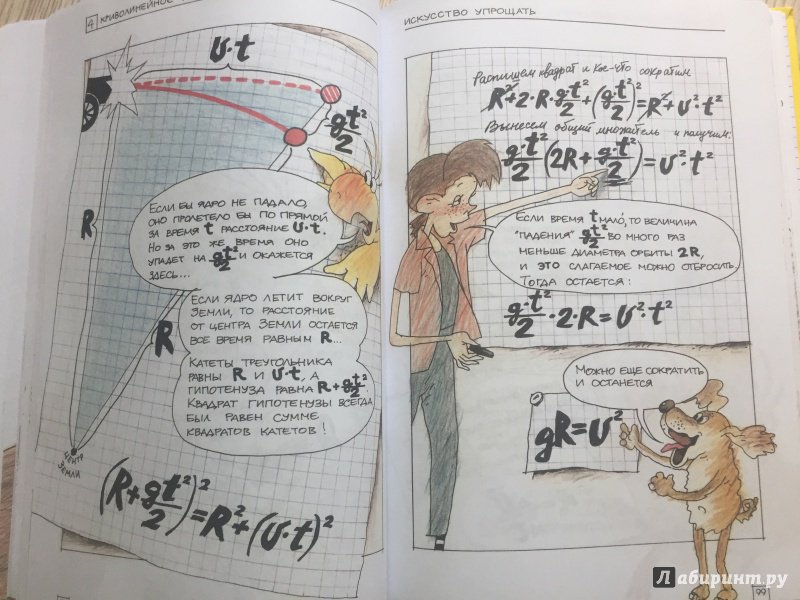 4 КРИВОЛИНЕЙНОЕ
υ·t
g·t²/2
R
ЕСЛИ БЫ ЯДРО НЕ ПАДАЛО,
ОНО ПРОЛЕТЕЛО БЫ ПО ПРЯМОЙ
ЗА ВРЕМЯ t РАССТОЯНИЕ υ·t.
НО ЗА ЭТО ЖЕ ВРЕМЯ ОНО
УПАДЕТ НА g·t²/2 И ОКАЖЕТСЯ
ЗДЕСЬ...
ЕСЛИ ЯДРО ЛЕТИТ ВОКРУГ
ЗЕМЛИ, ТО РАССТОЯНИЕ
ОТ ЦЕНТРА ЗЕМЛИ ОСТАЕТСЯ
ВСЕ ВРЕМЯ РАВНЫМ R...
R
КАТЕТЫ ТРЕУГОЛЬНИКА
РАВНЫ R И υ·t, А
ГИПОТЕНУЗА РАВНА R+g·t²/2
КВАДРАТ ГИПОТЕНУЗЫ ВСЕГДА
БЫЛ РАВЕН СУММЕ
КВАДРАТОВ КАТЕТОВ!
ЦЕНТР
ЗЕМЛИ
(R+g·t²/2)²=R²+(υ·t)²
ИСКУССТВО УПРОЩАТЬ
Распишем квадрат и кое-что сократим
R²+2·R·g·t²/2+(g·t²/2)²=R²+υ²·t²
Вынесем общий множитель и получим:
g·t²/2(2R+g·t²/2)=υ²·t²
ЕСЛИ ВРЕМЯ t МАЛО, ТО ВЕЛИЧИНА
"ПАДЕНИЯ" g·t²/2 ВО МНОГО РАЗ
МЕНЬШЕ ДИАМЕТРА ОРБИТЫ 2R,
И ЭТО СЛАГАЕМОЕ МОЖНО ОТБРОСИТЬ.
ТОГДА ОСТАЕТСЯ:
g·t²/2·2·R=υ²·t²
МОЖНО ЕЩЕ СОКРАТИТЬ
И ОСТАНЕТСЯ
gR=υ²
99
Лабиринт.ру